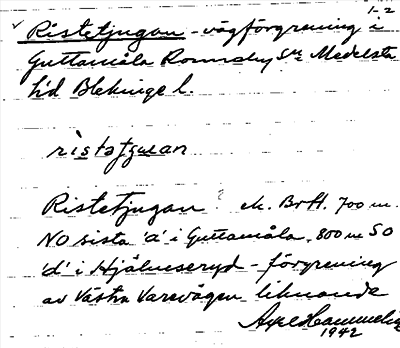 1-2
v Ristetjugan - vägförgrening i
Guttamåla Ronneby Sn Medelsta
hd Blekinge l.
ristatjugan
Ristetjugan ? ek. BrH. 700 m.
NO sista 'a' i Guttamåla, 800 m SO
'd' i Hjälmseryd - förgrening
av Västra Varevägen liknande
Axel Hammelin
1942